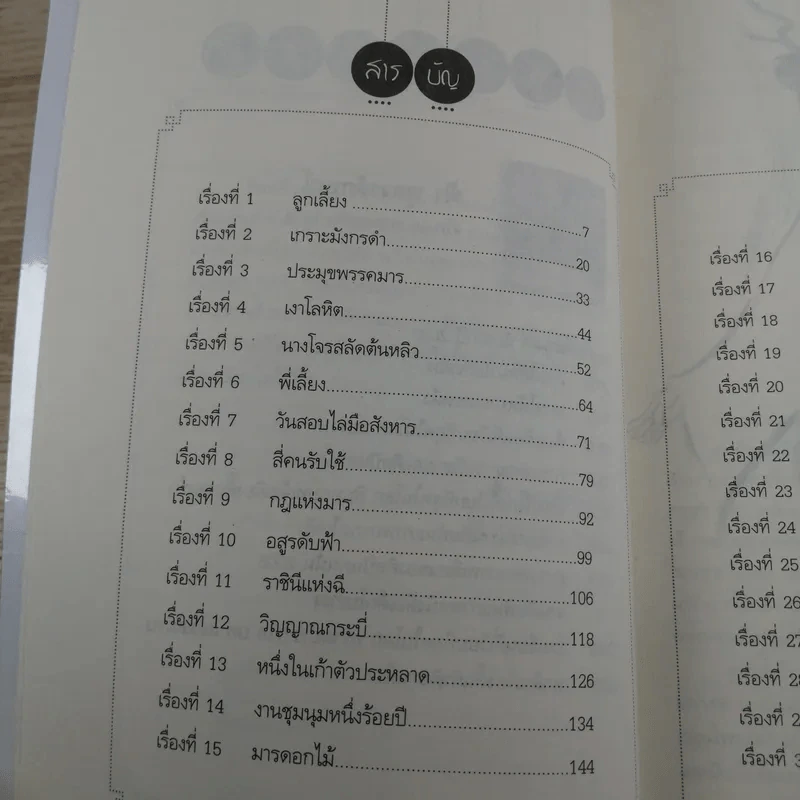 สารบัญ
เรื่องที่ 1 ลูกเลี้ยง ........................................7
เรื่องที่ 2 เกราะมังกรดำ........................................20
เรื่องที่ 3 ประมุขพรรคมาร........................................33
เรื่องที่ 4 เงาโลหิต........................................44
เรื่องที่ 5 นางโจรสลัดต้นหลิว........................................52
เรื่องที่ 6 พี่เลี้ยง........................................64
เรื่องที่ 7 วันสอบไล่มือสังหาร........................................71
เรื่องที่ 8 สี่คนรับใช้........................................79
เรื่องที่ 9 กฎแห่งมาร........................................92
เรื่องที่ 10 อสูรดับฟ้า........................................99
เรื่องที่ 11 ราชินีแห่งฉี........................................106
เรื่องที่ 12 วิญญาณกระบี่........................................118
เรื่องที่ 13 หนึ่งในเก้าตัวประหลาด........................................126
เรื่องที่ 14 งานชุมนุมหนึ่งร้อยปี........................................134
เรื่องที่ 15 มารดอกไม้........................................144
เรื่องที่ 16
เรื่องที่ 17
เรื่องที่ 18
เรื่องที่ 19
เรื่องที่ 20
เรื่องที่ 21
เรื่องที่ 22
เรื่องที่ 23
เรื่องที่ 24
เรื่องที่ 25
เรื่องที่ 26
เรื่องที่ 27
เรื่องที่ 28
เรื่องที่ 2
เรื่องที่ 3